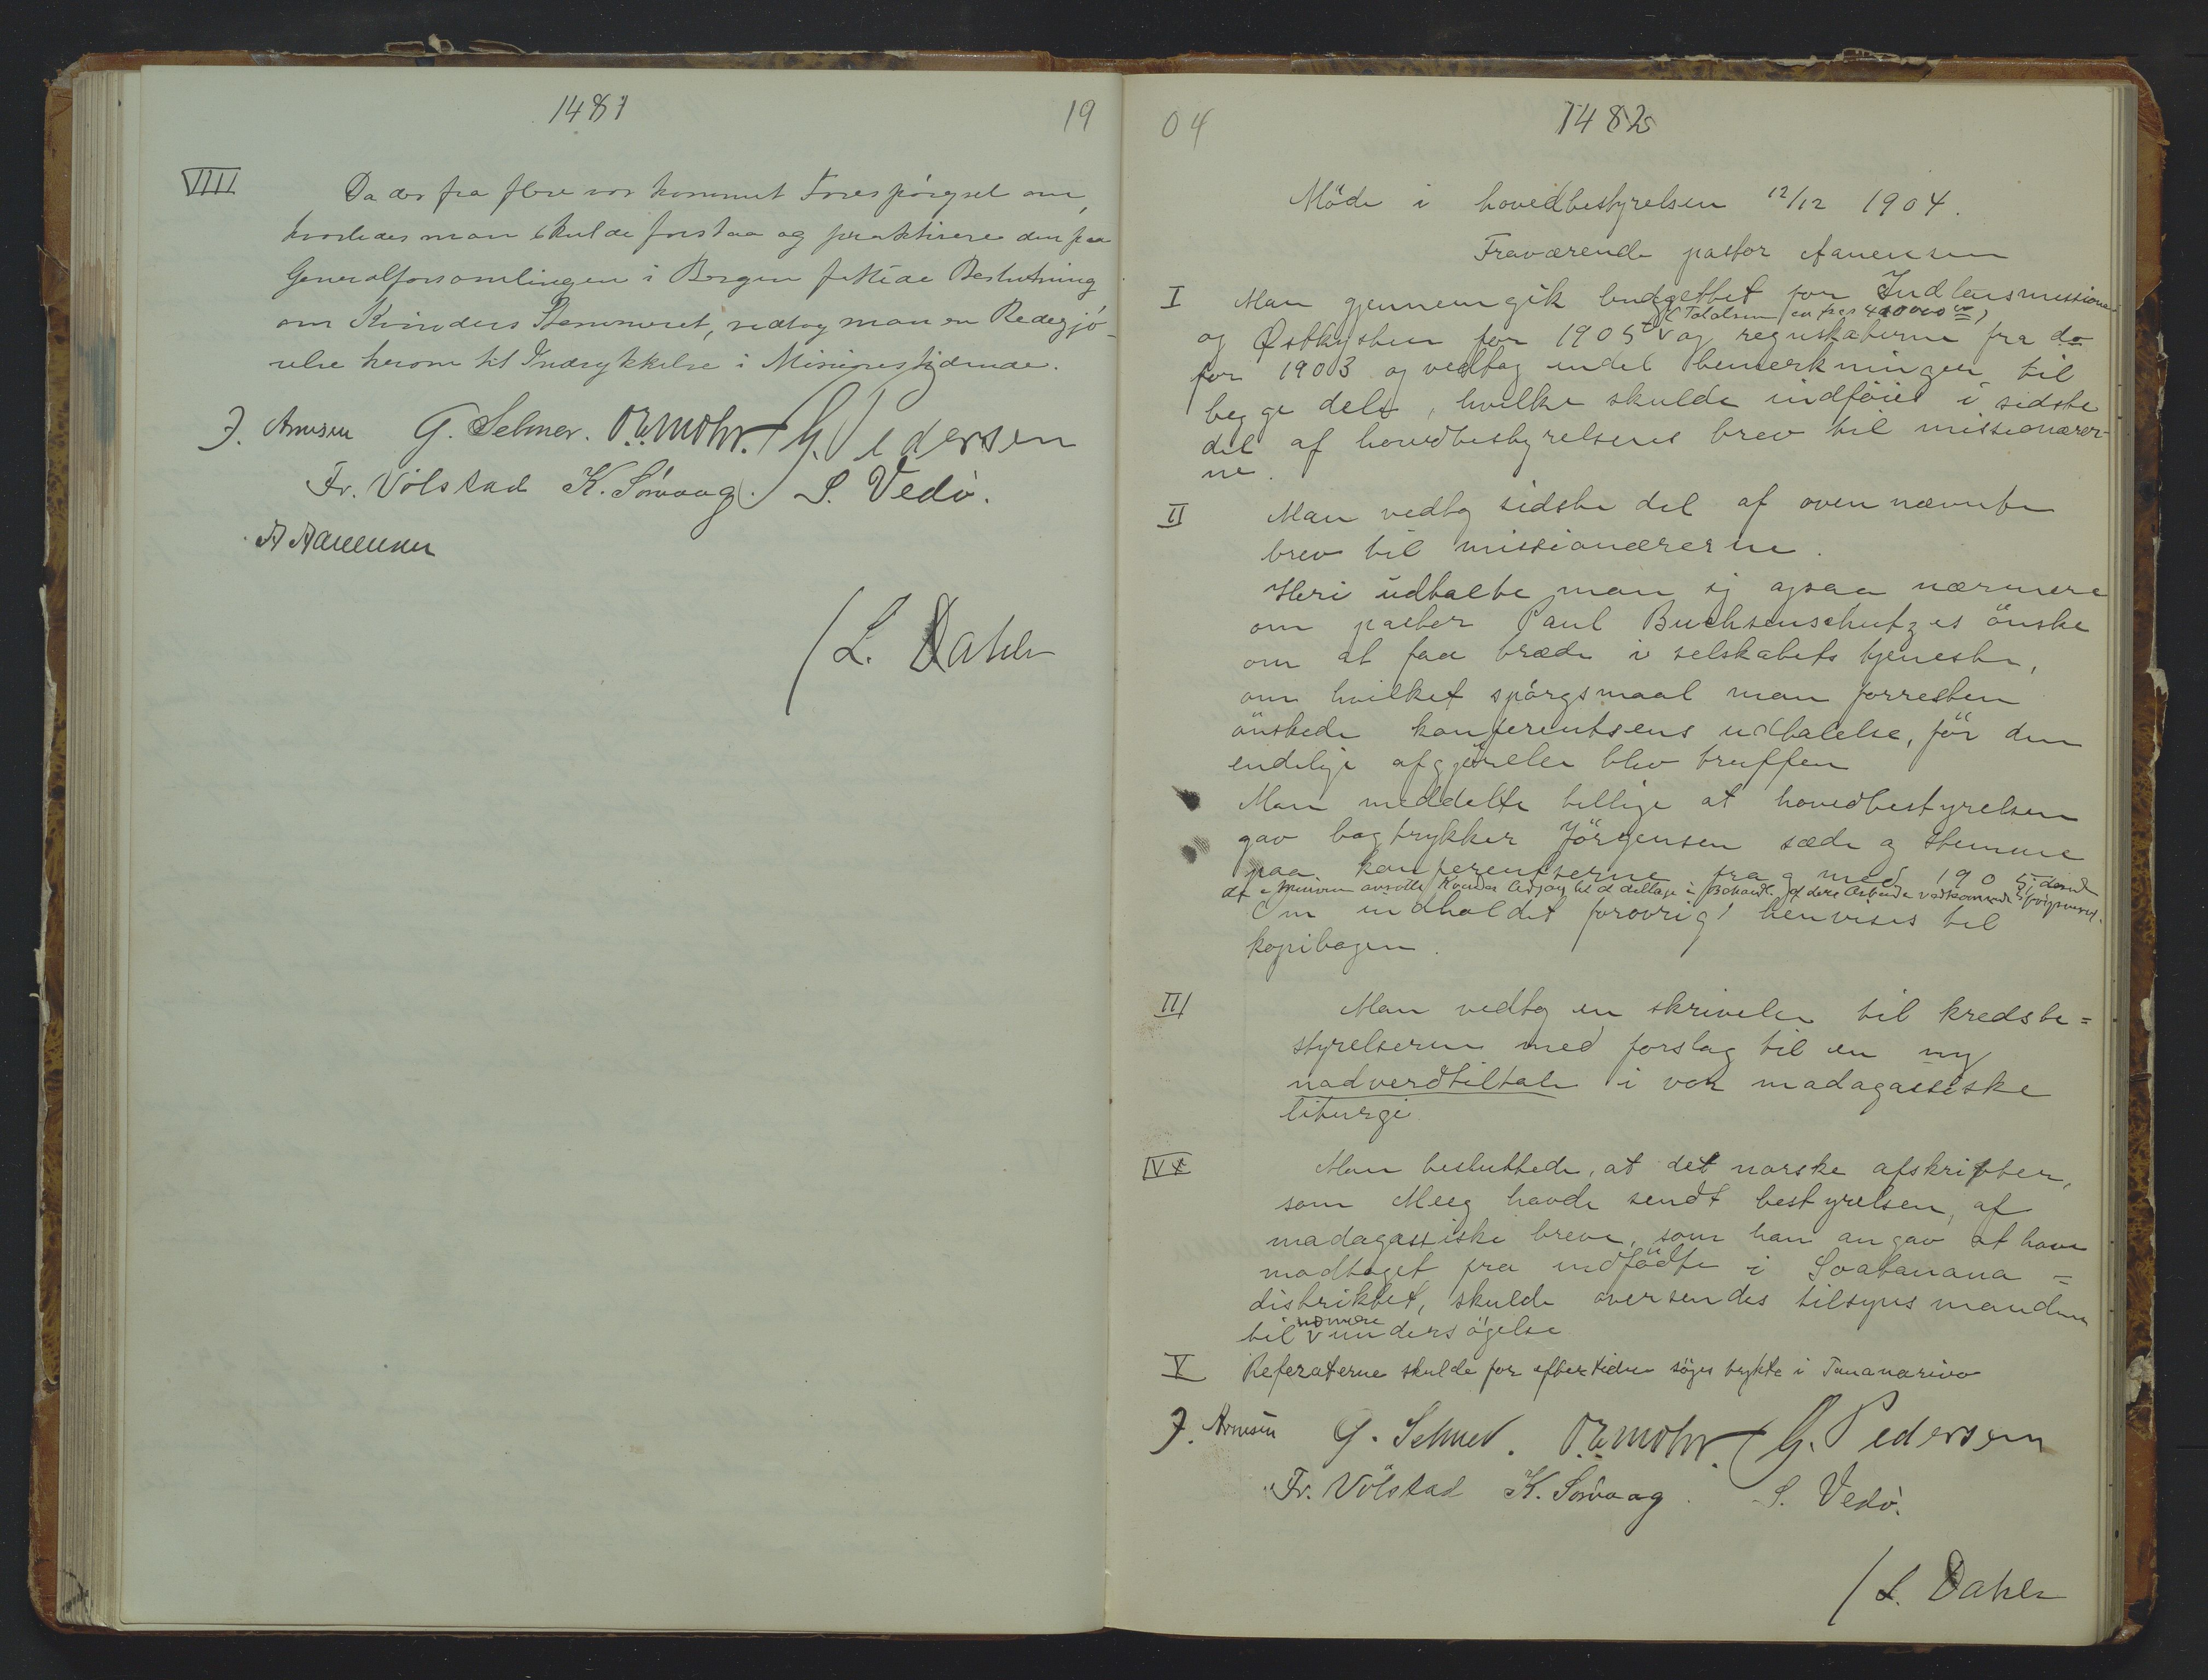 1481
19
VIII Da der fra flere var kommet Forespörgsel om,
hvorledes man skulde forstaa og praktisere den paa
Generalforsamlingen i Bergen fattede Beslutning
om Kvinders Stemmeret, vedtog man en Redegjö-
relse herom til Indrykkelse i Missionstidende.
J. Arnesen G. Selmer. O.Z. Mohr. G. Pedersen
Fr. Völstad K. Sörvaag. S. Vedö.
A Aanensen
/L. Dahle
04
1482
Möde i hovedbestyrelsen 12/12 1904.
Fraværende pastor Aanensen
I Man gjennemgik budgettet for Indlandsmissionen
(Totalsum ca frcs 400000 00)
og Östkysten for 1905 v og regnskaberne fra do
for 1903 og vedtog endel bemerkninger til
begge dele, hvilke skulde indföies i sidste
del af hovedbestyrelsens brev til missionærer-
ne.
II Man vedtog sidste del af ovennævnte
brev til missionærerne.
Heri udtalte man sig ogsaa nærmere
om pastor Paul Buchsenschutz's önske
om at faa træde i selskabets tjeneste,
om hvilket spörgsmaal man forresten
önskede konferentsens udtalelse, för den
endelige afgjörelse blev truffen
Man meddelte tillige at hovedbestyrelsen
gav bogtrykker Jörgensen sæde og stemme
paa konferentserne fra og med 1905,
at Missionen ansatte Kvinder Adgang til at deltage i Behandl. af dere Arbeide vedkommende Spörgsmaal.
Om indholdet forövrigt henvises til
kopibogen.
III Man vedtog en skrivelse til kredsbe=
styrelserne med forslag til en ny
nadverdtiltale i vor madagassiske
liturgi
IV Man besluttede, at det norske afskrifter,
som Meeg havde sendt bestyrelsen, af
madagassiske breve, som han angav at have
modtaget fra indfödte i Soatanana =
distriktet, skulde oversendes tilsynsmanden
nærmere
til v undersögelse
V Referaterne skulde for eftertiden söges trykte i Tananarivo
J. Arnesen G. Selmer. O.Z. Mohr. G. Pedersen
Fr. Völstad K. Sörvaag. S. Vedö.
/L. Dahle